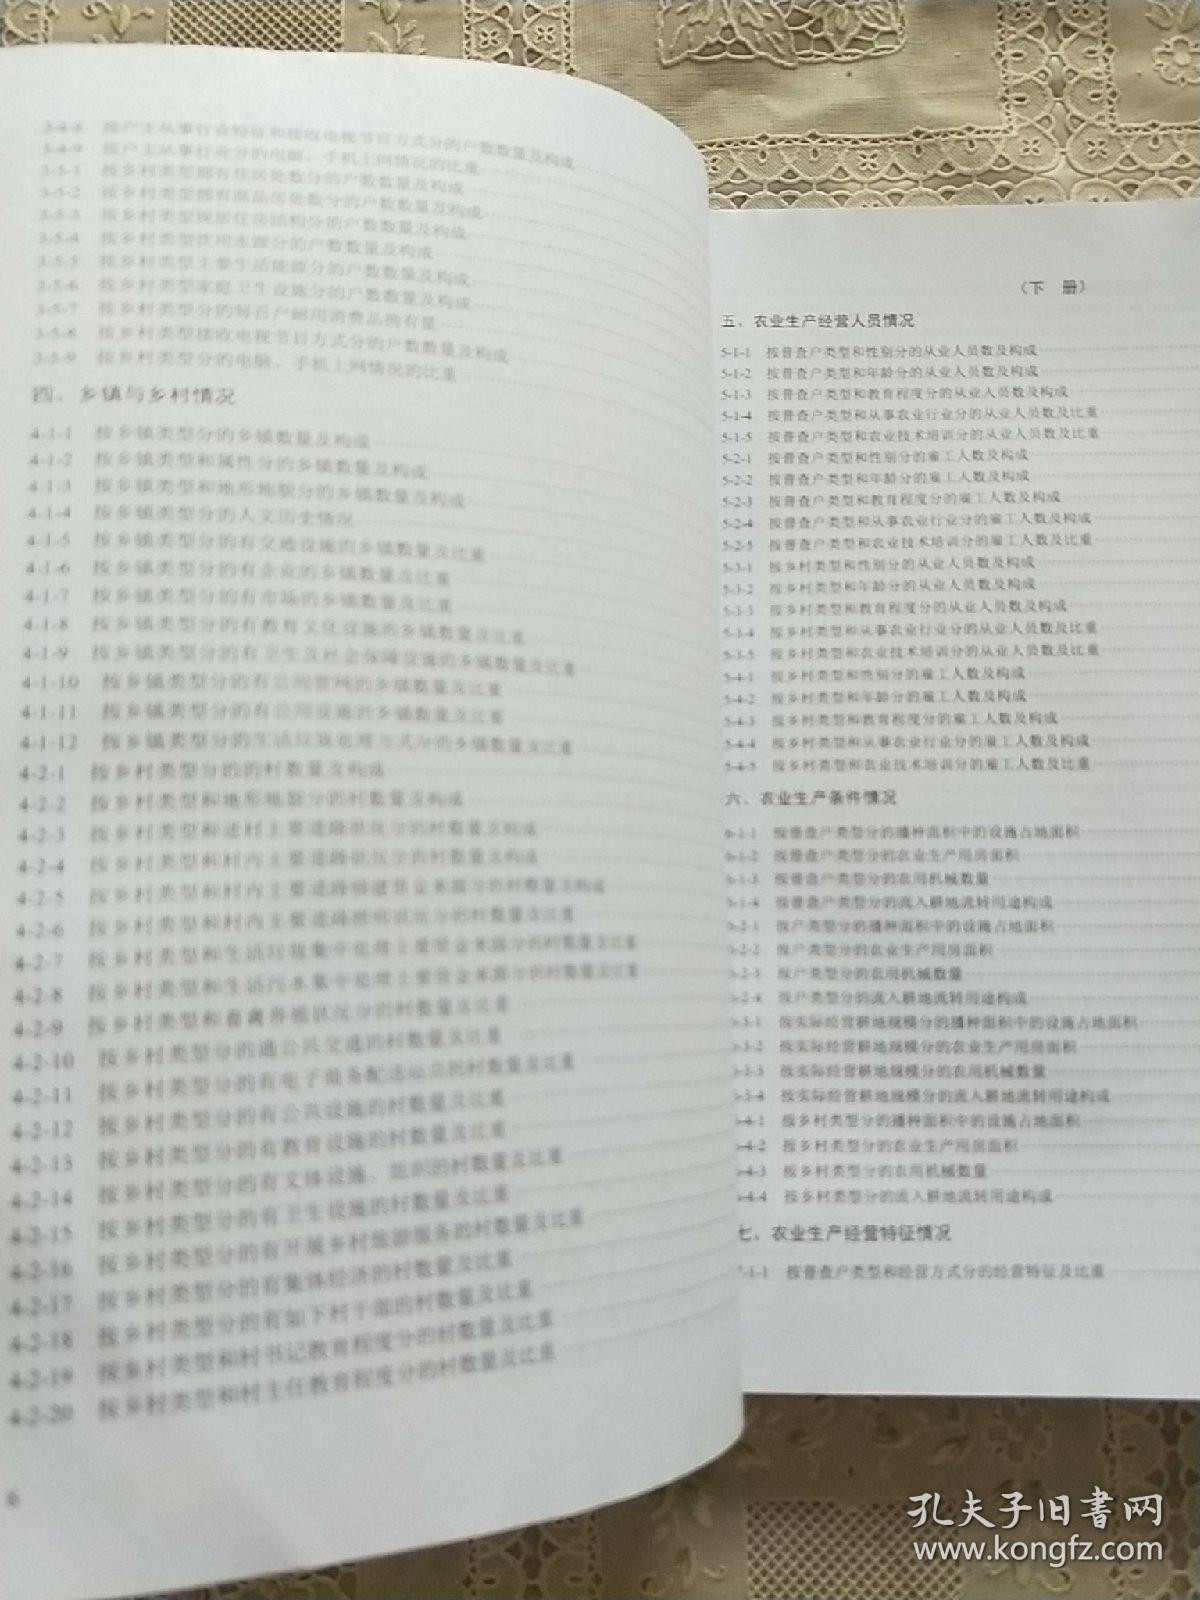 3-4-8 按户主从事行业特征和接收电视节目方式分的户数数量及构成
3-4-9 按户主从事行业分的电脑、手机上网情况的比重
3-5-1 按乡村类型拥有住房处数分的户数数量及构成
3-5-2 按乡村类型拥有商品房处数分的户数数量及构成
3-5-3 按乡村类型现居住房结构分的户数数量及构成
3-5-4 按乡村类型饮用水源分的户数数量及构成
3-5-5 按乡村类型主要生活能源分的户数数量及构成
3-5-6 按乡村类型家庭卫生设施分的户数数量及构成
3-5-7 按乡村类型分的每百户耐用消费品拥有量
3-5-8 按乡村类型接收电视节目方式分的户数数量及构成
3-5-9 按乡村类型分的电脑、手机上网情况的比重
四、乡镇与乡村情况
4-1-1 按乡镇类型分的乡镇数量及构成
4-1-2 按乡镇类型和属性分的乡镇数量及构成
4-1-3 按乡镇类型和地形地貌分的乡镇数量及构成
4-1-4 按乡镇类型分的人文历史情况
4-1-5 按乡镇类型分的有交通设施的乡镇数量及比重
4-1-6 按乡镇类型分的有企业的乡镇数量及比重
4-1-7 按乡镇类型分的有市场的乡镇数量及比重
4-1-8 按乡镇类型分的有教育文化设施的乡镇数量及比重
4-1-9 按乡镇类型分的有卫生及社会保障设施的乡镇数量及比重
4-1-10 按乡镇类型分的有公用管网的乡镇数量及比重
4-1-11 按乡镇类型分的有公用设施的乡镇数量及比重
4-1-12 按乡镇类型分的生活垃圾处理方式分的乡镇数量及比重
4-2-1 按乡村类型分的的村数量及构成
4-2-2 按乡村类型和地形地貌分的村数量及构成
4-2-3 按乡村类型和进村主要道路状况分的村数量及构成
4-2-4 按乡村类型和村内主要道路状况分的村数量及构成
4-2-5 按乡村类型和村内主要道路修建资金来源分的村数量及构成
4-2-6 按乡村类型和村内主要道路照明状况分的村数量及比重
4-2-7 按乡村类型和生活垃圾集中处理主要资金来源分的村数量及比重
4-2-8 按乡村类型和生活污水集中处理主要资金来源分的村数量及比重
4-2-9 按乡村类型和畜禽养殖状况分的村数量及比重
4-2-10 按乡村类型分的通公共交通的村数量及比重
4-2-11 按乡村类型分的有电子商务配送站点的村数量及比重
4-2-12 按乡村类型分的有公共设施的村数量及比重
4-2-13 按乡村类型分的有教育设施的村数量及比重
4-2-14 按乡村类型分的有文体设施、组织的村数量及比重
4-2-15 按乡村类型分的有卫生设施的村数量及比重
4-2-16 按乡村类型分的有开展乡村旅游服务的村数量及比重
4-2-17 按乡村类型分的有集体经济的村数量及比重
4-2-18 按乡村类型分的有如下村干部的村数量及比重
4-2-19 按乡村类型和村书记教育程度分的村数量及比重
4-2-20 按乡村类型和村主任教育程度分的村数量及比重
6
（下 册）
五、农业生产经营人员情况
5-1-1 按普查户类型和性别分的从业人员数及构成
5-1-2 按普查户类型和年龄分的从业人员数及构成
5-1-3 按普查户类型和教育程度分的从业人员数及构成
5-1-4 按普查户类型和从事农业行业分的从业人员数及比重
5-1-5 按普查户类型和农业技术培训分的从业人员数及比重
5-2-1 按普查户类型和性别分的雇工人数及构成
5-2-2 按普查户类型和年龄分的雇工人数及构成
5-2-3 按普查户类型和教育程度分的雇工人数及构成
5-2-4 按普查户类型和从事农业行业分的雇工人数及构成
5-2-5 按普查户类型和农业技术培训分的雇工人数及比重
5-3-1 按乡村类型和性别分的从业人员数及构成
5-3-2 按乡村类型和年龄分的从业人员数及构成
5-3-3 按乡村类型和教育程度分的从业人员数及构成
5-3-4 按乡村类型和从事农业行业分的从业人员数及比重
5-3-5 按乡村类型和农业技术培训分的从业人员数及比重
5-4-1 按乡村类型和性别分的雇工人数及构成
5-4-2 按乡村类型和年龄分的雇工人数及构成
5-4-3 按乡村类型和教育程度分的雇工人数及构成
5-4-4 按乡村类型和从事农业行业分的雇工人数及构成
5-4-5 按乡村类型和农业技术培训分的雇工人数及比重
六、农业生产条件情况
6-1-1 按普查户类型分的播种面积中的设施占地面积
6-1-2 按普查户类型分的农业生产用房面积
6-1-3 按普查户类型分的农用机械数量
6-1-4 按普查户类型分的流入耕地流转用途构成
6-2-1 按户类型分的播种面积中的设施占地面积
6-2-2 按户类型分的农业生产用房面积
6-2-3 按户类型分的农用机械数量
6-2-4 按户类型分的流入耕地流转用途构成
6-3-1 按实际经营耕地规模分的播种面积中的设施占地面积
6-3-2 按实际经营耕地规模分的农业生产用房面积
6-3-3 按实际经营耕地规模分的农用机械数量
6-3-4 按实际经营耕地规模分的流入耕地流转用途构成
6-4-1 按乡村类型分的播种面积中的设施占地面积
6-4-2 按乡村类型分的农业生产用房面积
6-4-3 按乡村类型分的农用机械数量
6-4-4 按乡村类型分的流入耕地流转用途构成
七、农业生产经营特征情况
7-1-1 按普查户类型和经营方式分的经营特征及比重
孔夫子旧书网
www.kongfz.com